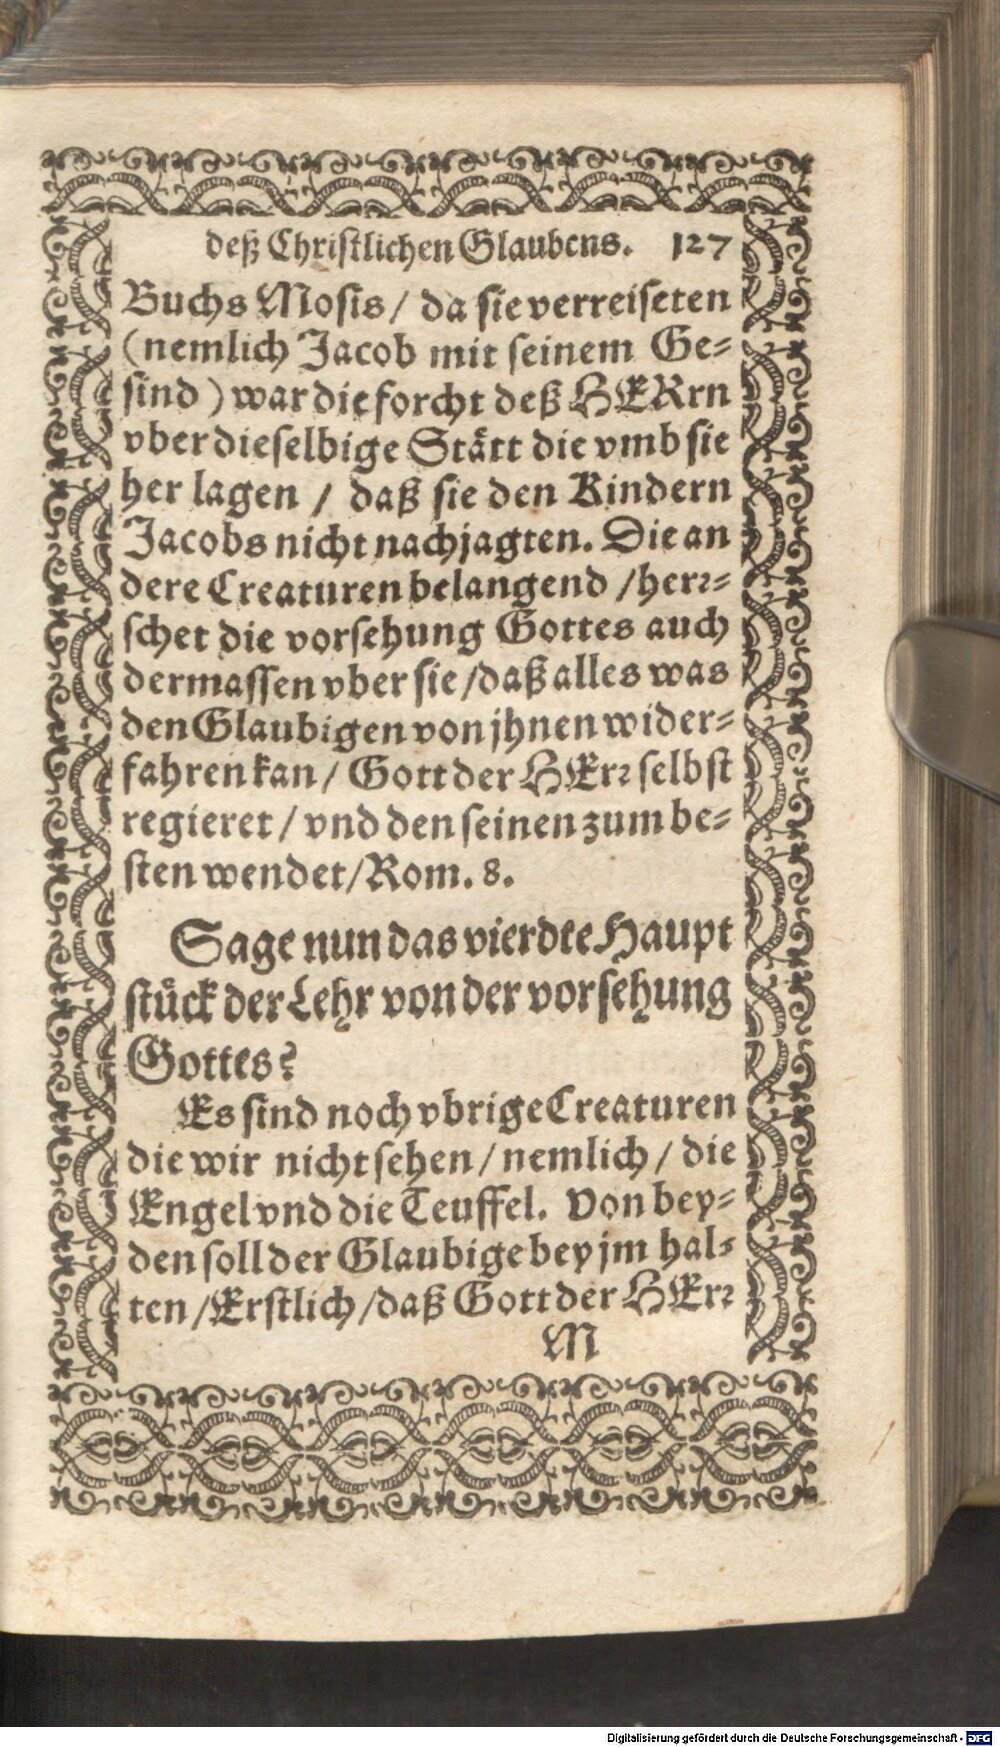 deß Christlichen Glaubens. 127
Buchs Mosis / da sie verreiseten
(nemlich Jacob mit seinem Ge-
sind ) war die forcht deß HERrn
vber dieselbige Stätt die vmb sie
her lagen / daß sie den Kindern
Jacobs nicht nachjagten. Die an
dere Creaturen belangend / herr-
schet die vorsehung Gottes auch
dermassen vber sie / daß alles was
den Glaubigen von jhnen wider-
fahren kan / Gott der HErr selbst
regieret / vnd den seinen zum be-
sten wendet / Rom. 8.
Sage nun das vierdte Haupt
stück der Lehr von der vorsehung
Gottes?
Es sind noch vbrige Creaturen
die wir nicht sehen / nemlich / die
Engel vnd die Teuffel. Von bey-
den soll der Glaubige bey jm hal-
ten / Erstlich / daß Gott der HErr
M
Digitalisierung gefördert durch die Deutsche Forschungsgemeinschaft - DFG